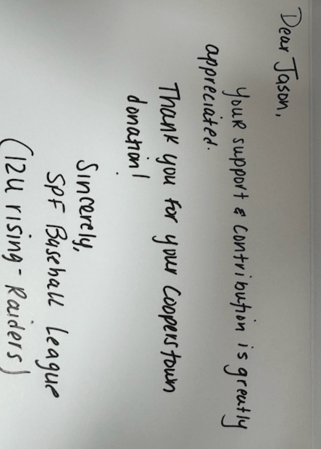 Dear Jason,
Your support & contribution is greatly
appreciated.
Thank you for your Cooperstown
donation!
Sincerely,
SPF Baseball League
(12U rising - Raiders)